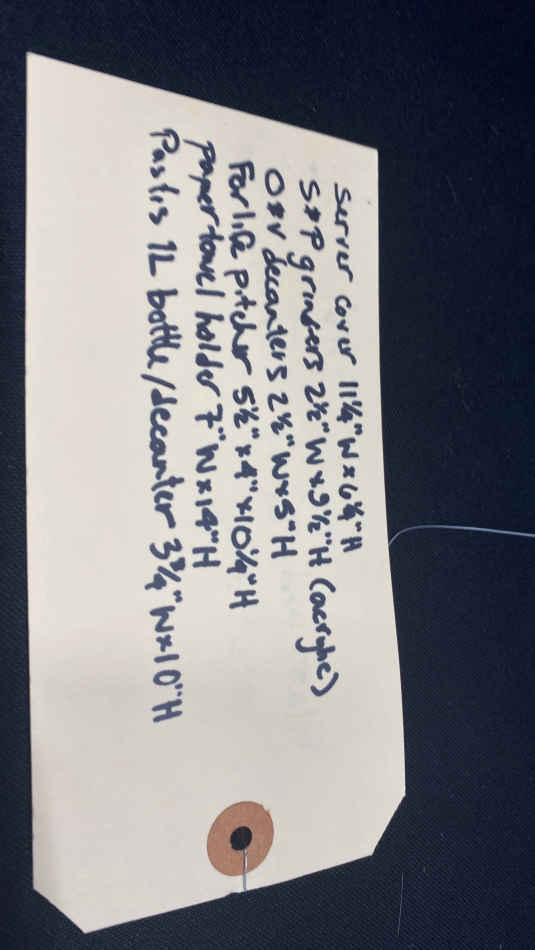 Server cover 11¼"W x 6¼"H
S&P grinders 2½"W x 3½"H (acrylic)
O&V decanters 2½"W x 5"H
For life pitcher 5½" x 4" x 10¼"H
Paper towel holder 7"W x 14"H
Pastis 1L bottle/decanter 3¾"W x 10"H